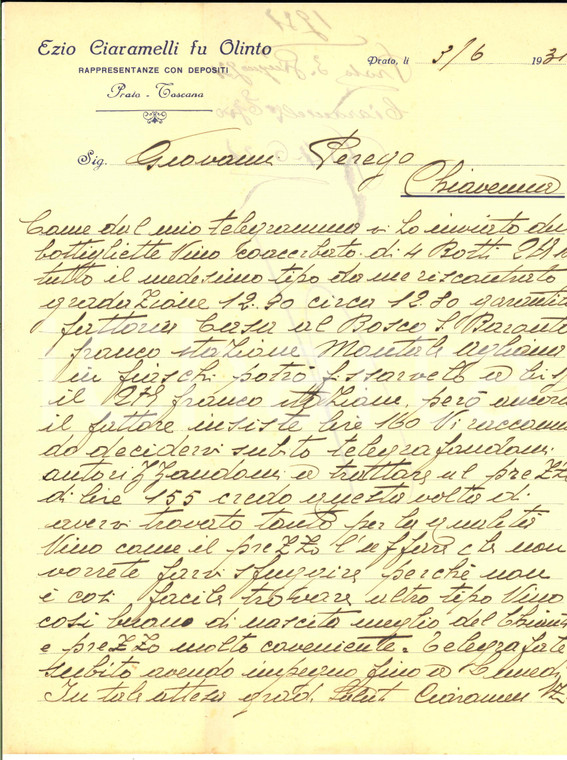 Ezio Ciaramelli fu Olinto
RAPPRESENTANZE CON DEPOSITI
Prato - Toscana
Prato, li 3/6 1931
Sig. Giovanni Perego
Chiavenna
Come dal mio telegramma vi ho inviato due
bottigliette Vino di 4 Botti
tutto il medesimo tipo da me riscontrato
gradazione 12.70 circa 12.80 garantita
fattoria Casa al Bosco S. Baronto
franco stazione Montale Agliana
in fiaschi potrò fissarvelo a
il franco però ancora
il fattore insiste lire 160 Vi raccoman
do decidervi subito telegrafandomi
autorizzandomi a trattare al prezzo
di lire 155 credo questa volta di
avervi trovato tanto per la qualità
Vino come il prezzo l'affare che non
vorrete farvi sfuggire perchè non
è così facile trovare altro tipo Vino
così buono di nascita meglio del Chianti
e prezzo molto coveniente. Telegrafate
subito avendo impegno fino a Lunedì
In tale attesa grad. Saluti Ciaramelli